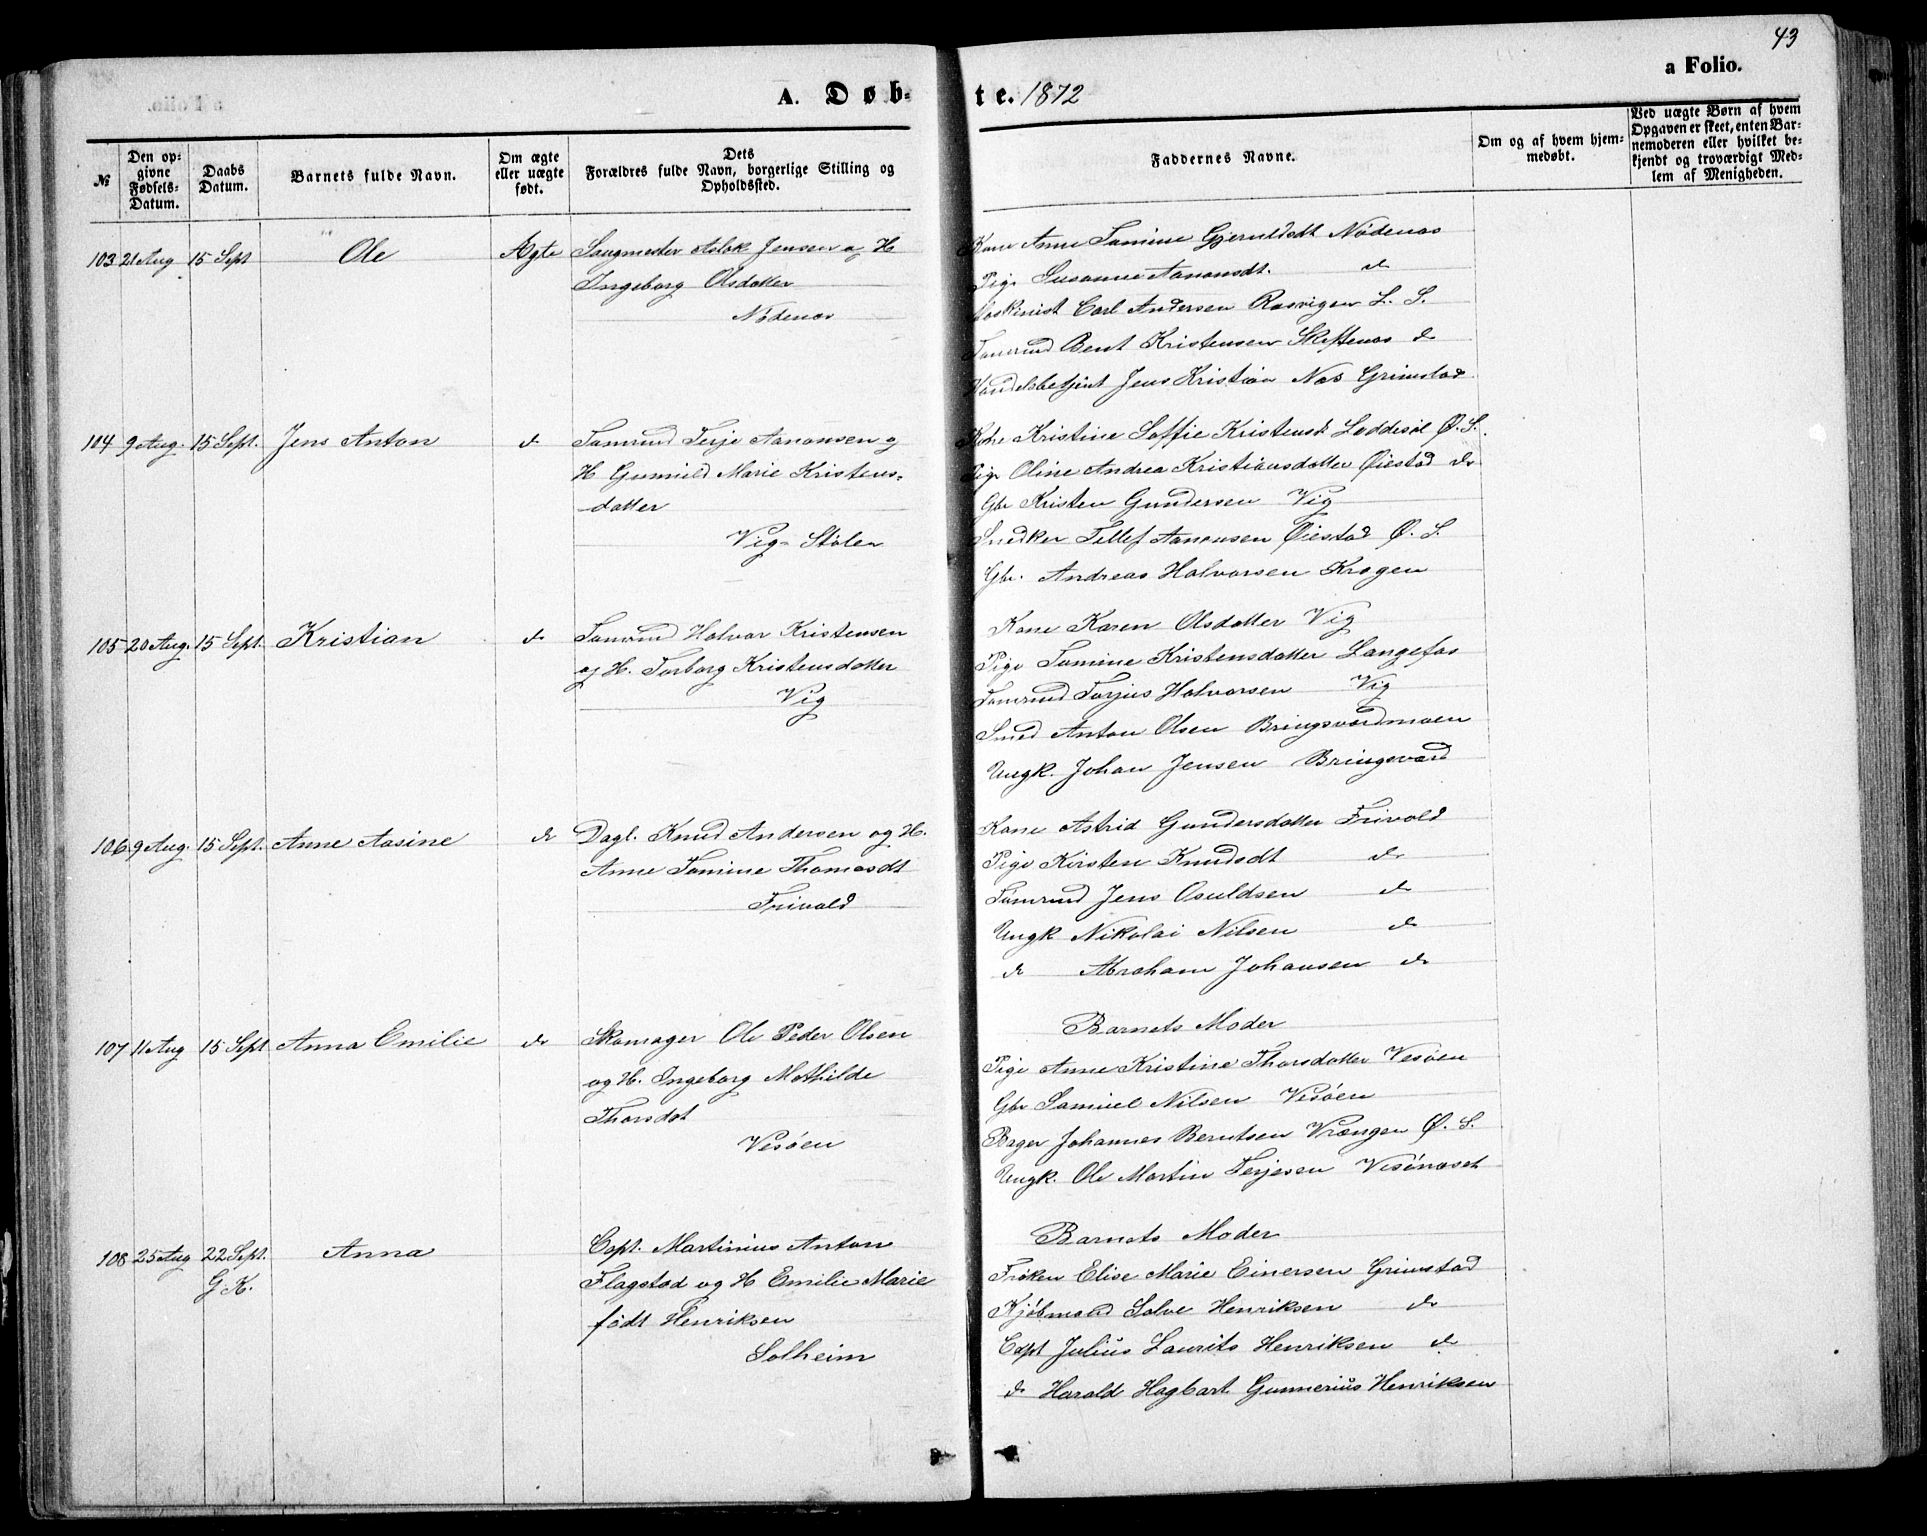 43
a Folio.
A. Døb-
te. 1872
№
Den op-
givne
Fødsels-
Datum.
Daabs
Datum.
Barnets fulde Navn.
Om ægte
eller uægte
født.
Dets
Forældres fulde Navn, borgerlige Stilling og
Opholdssted.
Faddernes Navne.
Om og af hvem hjem-
medøbt.
Ved uægte Børn af hvem
Opgaven er skeet, enten Bar-
nemoderen eller hvilket be-
kjendt og troværdigt Med-
lem af Menigheden.
103 21 Aug 15 Sept Ole Ægte Saugmester Aslak Jensen og H
Ingeborg Olsdatter
Nödenæs
Kone Anne Tomine Gjeruldsdt Nödenæs
Pige Susanne Aanonsdt. do
Maskinist Carl Andersen Rosvigen L. S.
Tømmd Bent Kristensen Skeftenæs do
Handelsbetjent Jens Kristian Næs Grimstad
104 9 Aug. 15 Sept. Jens Anton do Tømmd Terje Aanonsen og
H Gunnild Marie Kristens-
datter
Vig-Stølen
Kone Kristine Soffie Kristensdt Loddesöl Ø. S.
Pige Oline Andrea Kristiansdatter Øiestad do
Gbr Kristen Gundersen Vig
Snedker Tellef Aanonsen Øiestad Ø. S.
Gbr. Andreas Halvorsen Krogen
105 20 Aug. 15 Sept. Kristian do Tømmd Halvor Kristensen
og H. Torborg Kristensdatter
Vig
Kone Karen Olsdatter Vig
Pige Tomine Kristensdatter Langefos
Tømmd Torjus Halvorsen Vig
Smed Anton Olsen Bringsværdmoen
Ungk. Johan Jensen Bringsværd
106 9 Aug. 15 Sept. Anne Aasine do Dagl. Knud Andersen og H.
Anne Tomine Thomasdt
Frivold
Kone Astrid Gundersdatter Frivold
Pige Kirsten Knudsdt do
Tømmd Jens Osuldsen do
Ungk Nikolai Nilsen do
do Abraham Johansen do
107 11 Aug 15 Sept Anna Emilie do Skomager Ole Peder Olsen
og H. Ingeborg Mathilde
Thorsdat
Vesöen
Barnets Moder
Pige Anne Kristine Thorsdatter Vesöen
Gbr Samuel Nilsen Vesöen
Bager Johannes Berntsen Vrængen Ø. S.
Ungk. Ole Martin Terjesen Vesönæset
108 25 Aug 22 Sept. Anna Capt. Martinius Anton
G. K. Flagstad og H Emilie Marie
født Henriksen
Solheim
Barnets Moder
Frøken Elise Marie Einersen Grimstad
Kjöbmand Salve Henriksen do
Capt Julius Laurits Henriksen do
do Harald Hagbart Gunnerius Henriksen